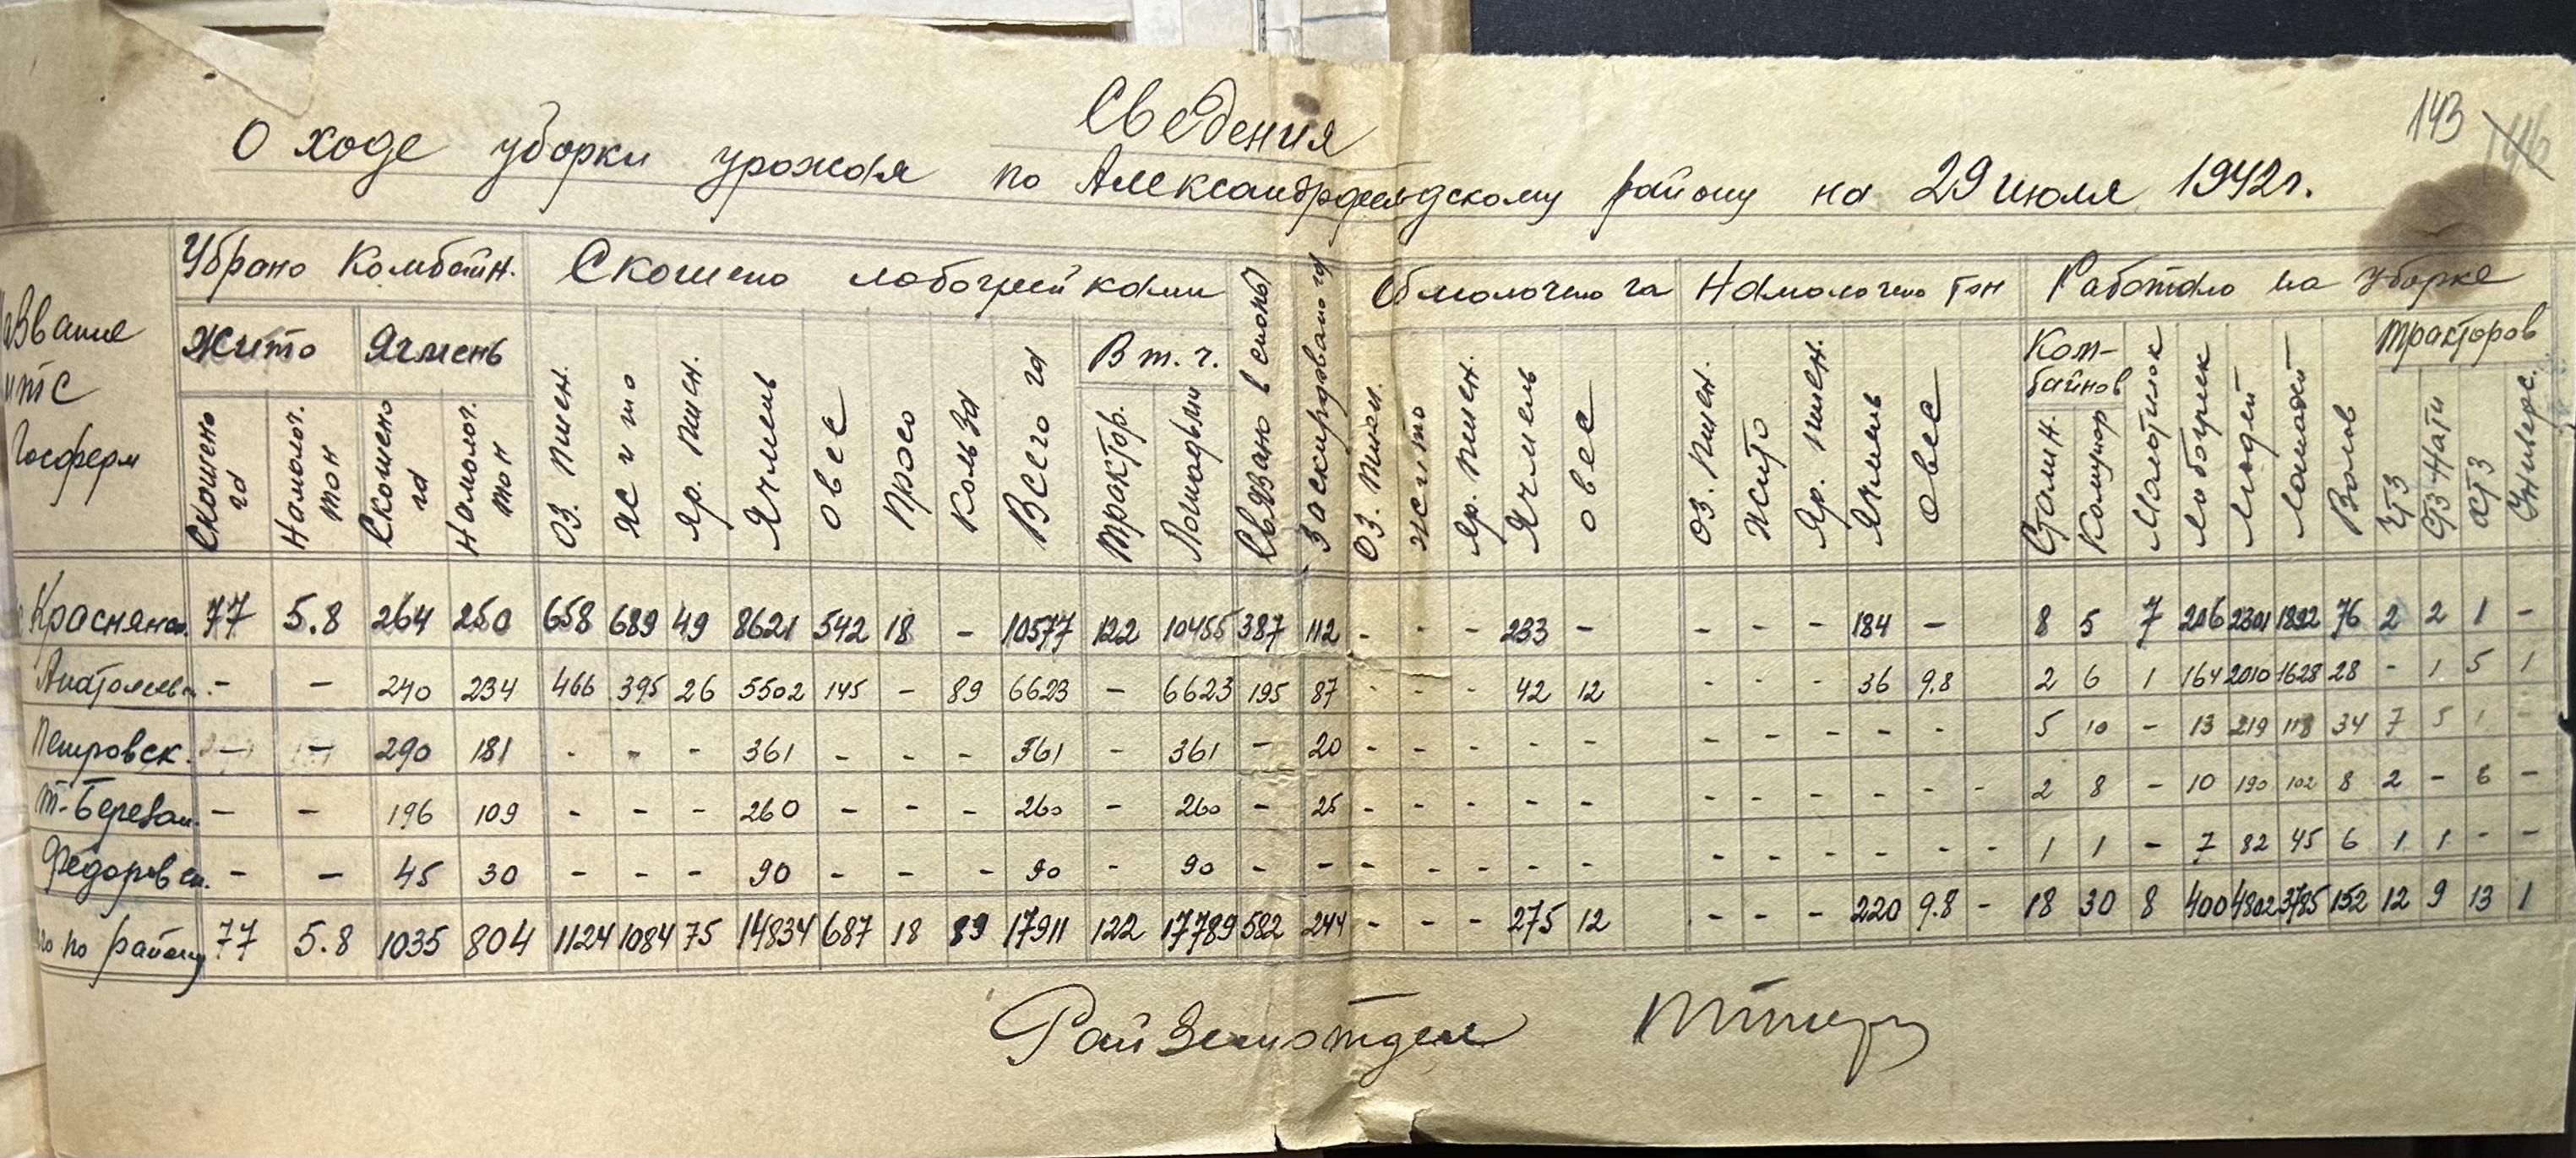 143
146
Сведения
О ходе уборки урожая по Александрфельдскому району на 29 июля 1942 г.
Название МТС Госферм
Убрано Комбайн.
Жито
Скошено га
Намолот. тон
Ячмень
Скошено га
Намолот. тон
Скошено лобогрейками
Оз. пшен.
Жито
Яр. пшен.
Ячмень
Овес
Просо
Кольза
Всего га
В т. ч.
Трактор.
Лошадьми
Связано в снопы
Заскирдовано га
Обмолочено га
Оз. пшен.
жито
Яр. пшен.
Ячмень
Овес
Намолочено тон
Оз. пшен.
Жито
Яр. пшен.
Ячмень
Овес
Работало на уборке
Комбайнов
Сталин.
Комунар
Малотилок
Лобогреек
Людей
Лошадей
Волов
тракторов
ЧТЗ
СТЗ Нати
ХТЗ
Универс.
Краснянск. 77 5.8 264 250 658 689 49 8621 542 18 - 10577 122 10455 387 112 - - - 233 - - - - 184 - 8 5 7 206 2301 1892 76 2 2 1 -
Анатольевк. - - 240 234 466 395 26 5502 145 - 89 6623 - 6623 195 87 - - - 42 12 - - - 36 9.8 2 6 1 164 2010 1628 28 - 1 5 1
Петровск. - - 290 181 - - - 361 - - - 361 - 361 - 20 - - - - - - - - - - 5 10 - 13 219 118 34 7 5 1 -
Т-Березан. - - 196 109 - - - 260 - - - 260 - 260 - 25 - - - - - - - - - - - 2 8 - 10 190 102 8 2 - 6 -
Федоровск. - - 45 30 - - - 90 - - - 90 - 90 - - - - - - - - - - - - - 1 1 - 7 82 45 6 1 1 - -
го по району 77 5.8 1035 804 1124 1084 75 14834 687 18 89 17911 122 17789 582 244 - - - 275 12 - - - 220 9.8 - 18 30 8 400 4802 3785 152 12 9 13 1
Райземотдел